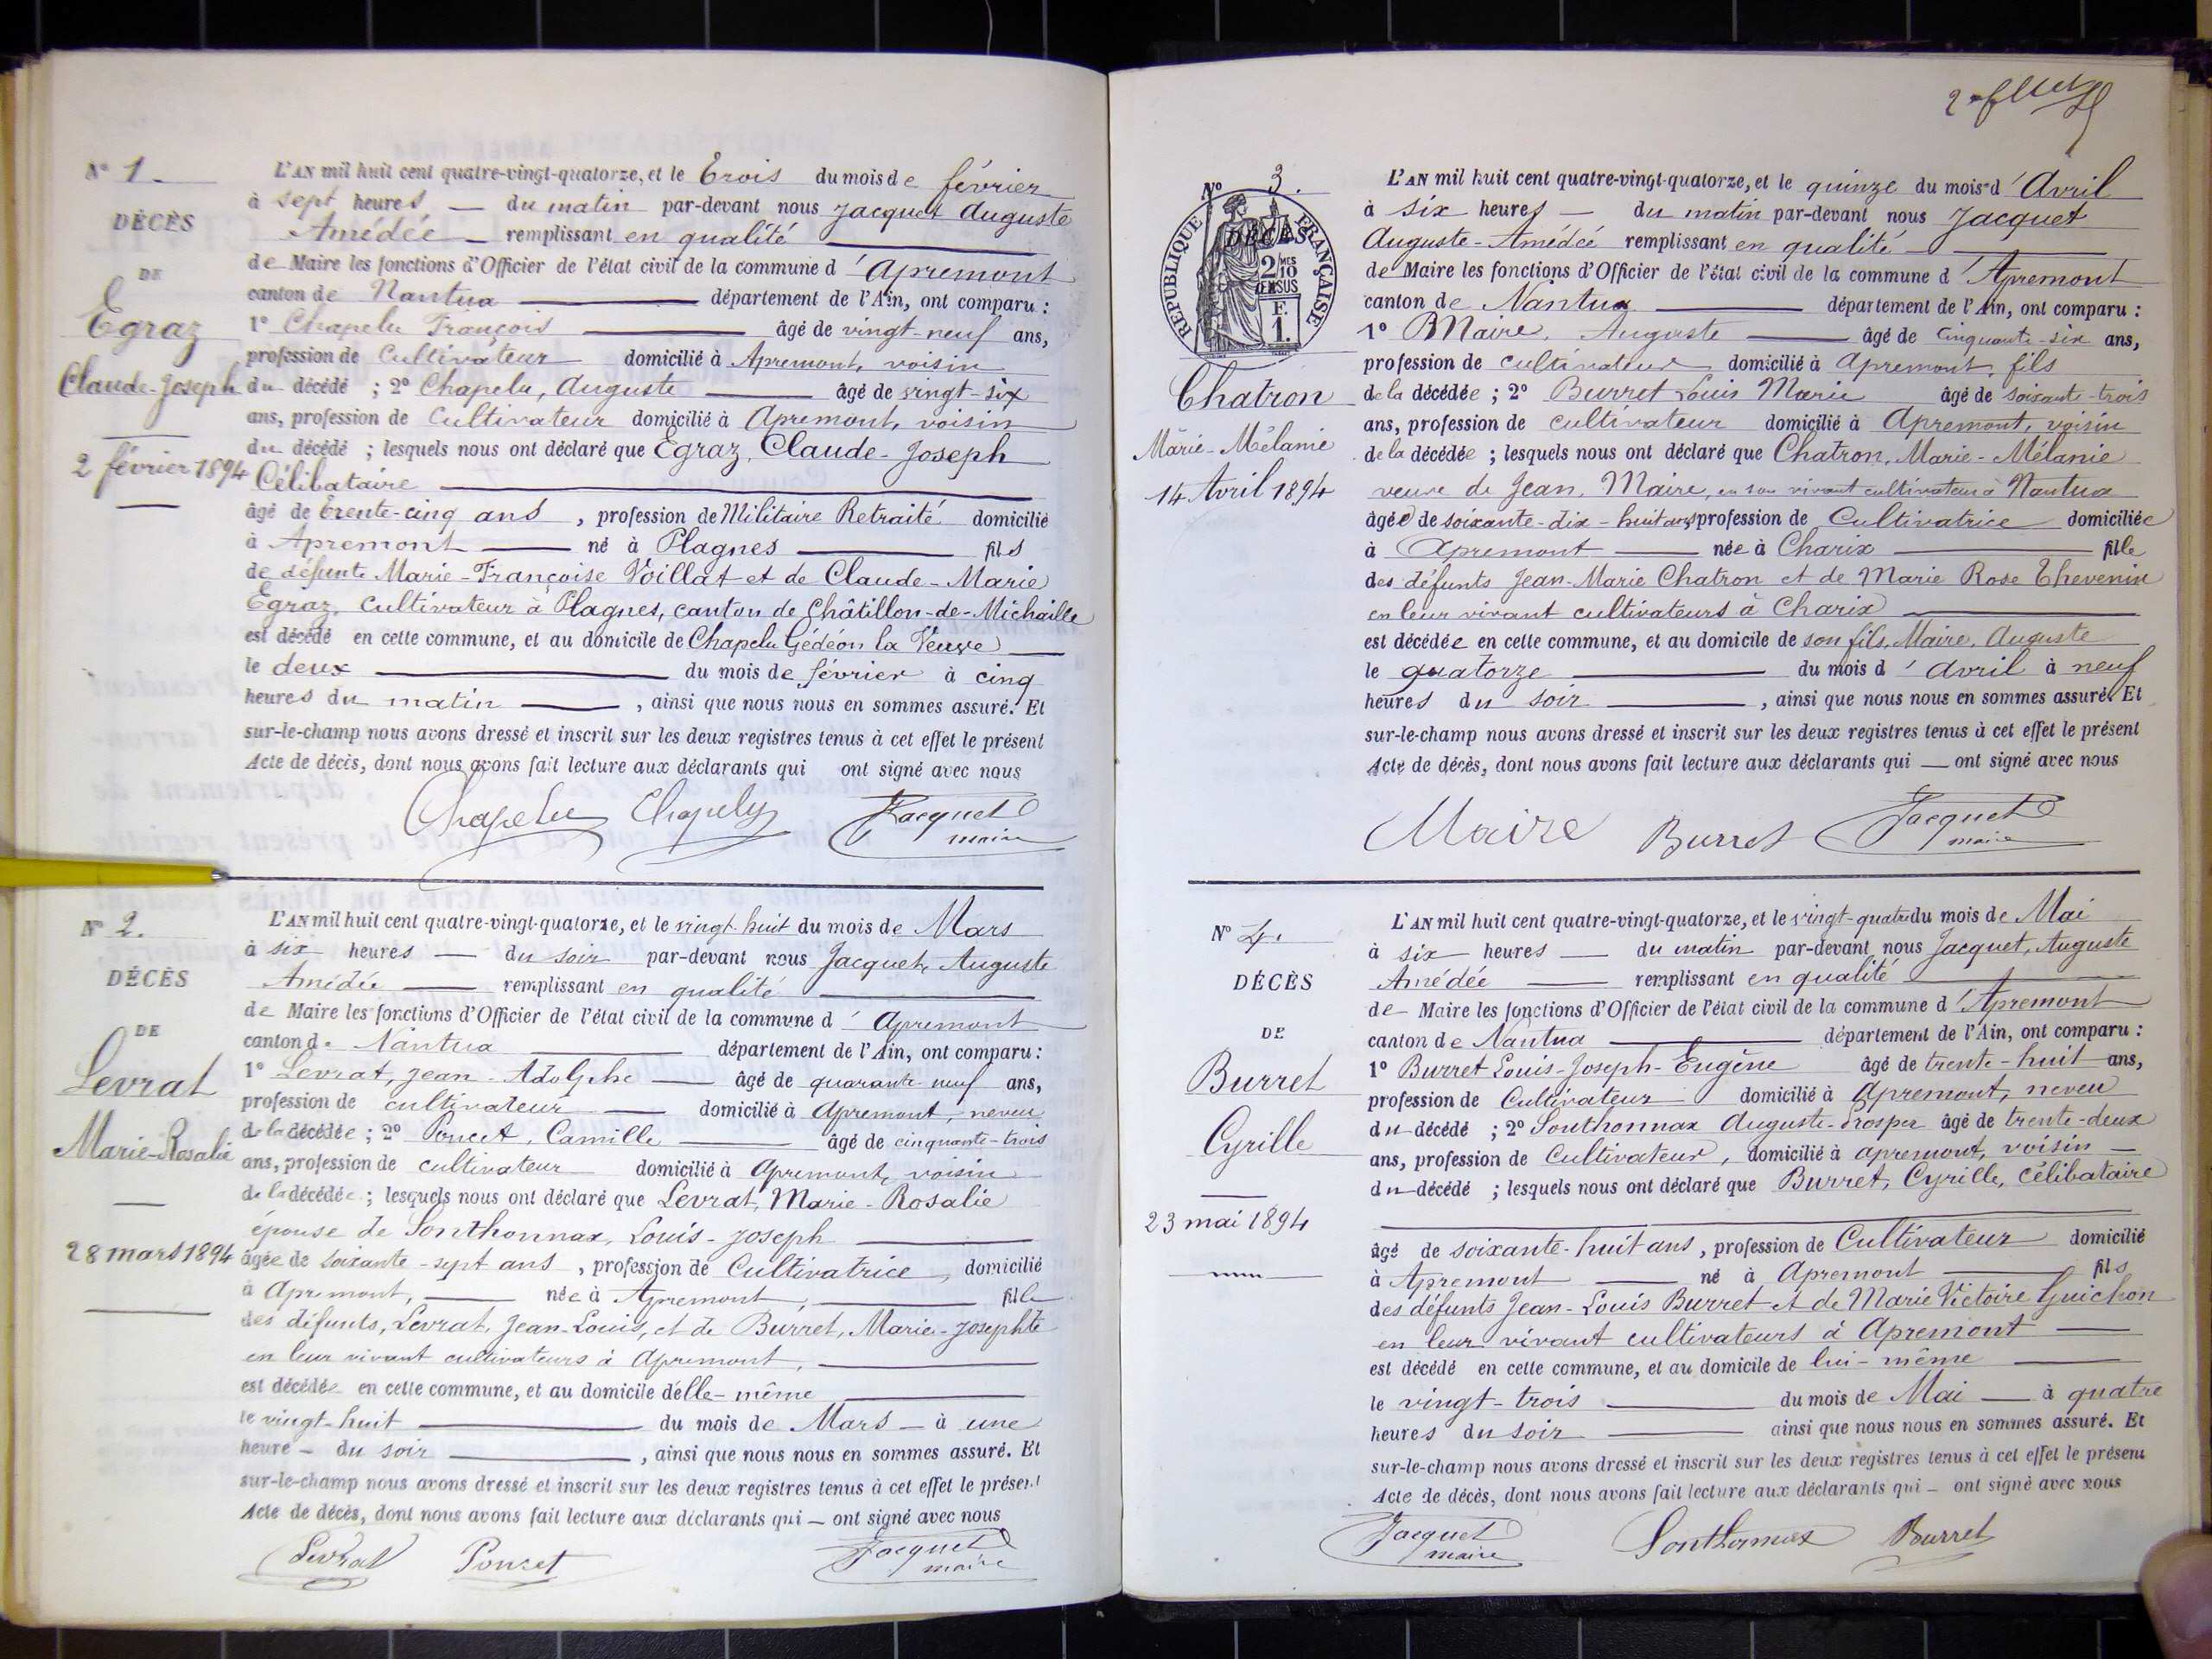 N° 1.
DÉCÈS
DE
Egraz
Claude-Joseph
2 février 1894
L'AN mil huit cent quatre-vingt-quatorze, et le trois du mois de février
à sept heures — du matin par-devant nous Jacquet Auguste
Amédée — remplissant en qualité
de Maire les fonctions d'Officier de l'état civil de la commune d'Apremont
canton de Nantua département de l'Ain, ont comparu :
1° Chapelu François âgé de vingt-neuf ans,
profession de Cultivateur domicilié à Apremont, voisin
du décédé ; 2° Chapelu, Auguste âgé de vingt-six
ans, profession de Cultivateur domicilié à Apremont, voisin
du décédé ; lesquels nous ont déclaré que Egraz, Claude-Joseph
Célibataire
âgé de trente-cinq ans, profession de Militaire Retraité domicilié
à Apremont né à Plagnes fils
de défunte Marie-Françoise Voillat et de Claude-Marie
Egraz, Cultivateur à Plagnes, canton de Châtillon-de-Michaille
est décédé en cette commune, et au domicile de Chapelu Gédéon la Veuve
le deux du mois de février à cinq
heures du matin, ainsi que nous nous en sommes assuré. Et
sur-le-champ nous avons dressé et inscrit sur les deux registres tenus à cet effet le présent
Acte de décès, dont nous avons fait lecture aux déclarants qui ont signé avec nous
Chapelu Chapelu Jacquet
maire
N° 2.
DÉCÈS
DE
Levrat
Marie-Rosalie
28 mars 1894
L'AN mil huit cent quatre-vingt-quatorze, et le vingt-huit du mois de Mars
à six heures — du soir par-devant nous Jacquet, Auguste
Amédée — remplissant en qualité
de Maire les fonctions d'Officier de l'état civil de la commune d'Apremont
canton de Nantua département de l'Ain, ont comparu :
1° Levrat, Jean-Adolphe — âgé de quarante-neuf ans,
profession de cultivateur — domicilié à Apremont, neveu
de la décédée ; 2° Poncet, Camille âgé de cinquante-trois
ans, profession de cultivateur domicilié à Apremont, voisin
de la décédée ; lesquels nous ont déclaré que Levrat, Marie-Rosalie
épouse de Sonthonnax, Louis-Joseph
âgée de soixante-sept ans, profession de Cultivatrice, domicilié
à Apremont, née à Apremont, fille
des défunts, Levrat, Jean-Louis, et de Burret, Marie-Josephte
en leur vivant cultivateurs à Apremont,
est décédée en cette commune, et au domicile d'elle-même
le vingt-huit du mois de Mars — à une
heure — du soir, ainsi que nous nous en sommes assuré. Et
sur-le-champ nous avons dressé et inscrit sur les deux registres tenus à cet effet le présent
Acte de décès, dont nous avons fait lecture aux déclarants qui — ont signé avec nous
Levrat Poncet Jacquet
maire
N° 3.
DÉCÈS
RÉPUBLIQUE FRANÇAISE
2/10 EN SUS
F.
1.
Chatron
Marie-Mélanie
14 Avril 1894
L'AN mil huit cent quatre-vingt-quatorze, et le quinze du mois d'Avril
à six heures — du matin par-devant nous Jacquet
Auguste-Amédée remplissant en qualité
de Maire les fonctions d'Officier de l'état civil de la commune d'Apremont
canton de Nantua département de l'Ain, ont comparu :
1° Maire, Auguste âgé de cinquante-six ans,
profession de cultivateur domicilié à Apremont, fils
de la décédée ; 2° Burret Louis Marie âgé de soixante-trois
ans, profession de cultivateur domicilié à Apremont, voisin
de la décédée ; lesquels nous ont déclaré que Chatron, Marie-Mélanie
veuve de Jean, Maire, en son vivant cultivateur à Nantua
âgée de soixante-dix-huit ans profession de Cultivatrice domiciliée
à Apremont née à Charix fille
des défunts Jean-Marie Chatron et de Marie Rose Thevenin
en leur vivant cultivateurs à Charix
est décédée en cette commune, et au domicile de son fils, Maire, Auguste
le quatorze du mois d'avril à neuf
heures du soir, ainsi que nous nous en sommes assuré. Et
sur-le-champ nous avons dressé et inscrit sur les deux registres tenus à cet effet le présent
Acte de décès, dont nous avons fait lecture aux déclarants qui — ont signé avec nous
Maire Burret Jacquet
maire
N° 4.
DÉCÈS
DE
Burret
Cyrille
23 mai 1894
L'AN mil huit cent quatre-vingt-quatorze, et le vingt-quatre du mois de Mai
à six heures — du matin par-devant nous Jacquet, Auguste
Amédée — remplissant en qualité
de Maire les fonctions d'Officier de l'état civil de la commune d'Apremont
canton de Nantua département de l'Ain, ont comparu :
1° Burret Louis-Joseph-Eugène âgé de trente-huit ans,
profession de Cultivateur domicilié à Apremont, neveu
du décédé ; 2° Sonthonnax Auguste-Prosper âgé de trente-deux
ans, profession de Cultivateur, domicilié à apremont, voisin —
du décédé ; lesquels nous ont déclaré que Burret, Cyrille, Célibataire
âgé de soixante-huit ans, profession de Cultivateur domicilié
à Apremont — né à Apremont fils
des défunts Jean-Louis Burret et de Marie Victoire Guichon
en leur vivant cultivateurs à Apremont —
est décédé en cette commune, et au domicile de lui-même
le vingt-trois du mois de Mai — à quatre
heures du soir ainsi que nous nous en sommes assuré. Et
sur-le-champ nous avons dressé et inscrit sur les deux registres tenus à cet effet le présent
Acte de décès, dont nous avons fait lecture aux déclarants qui — ont signé avec nous
Jacquet Sonthonnax Burret
maire